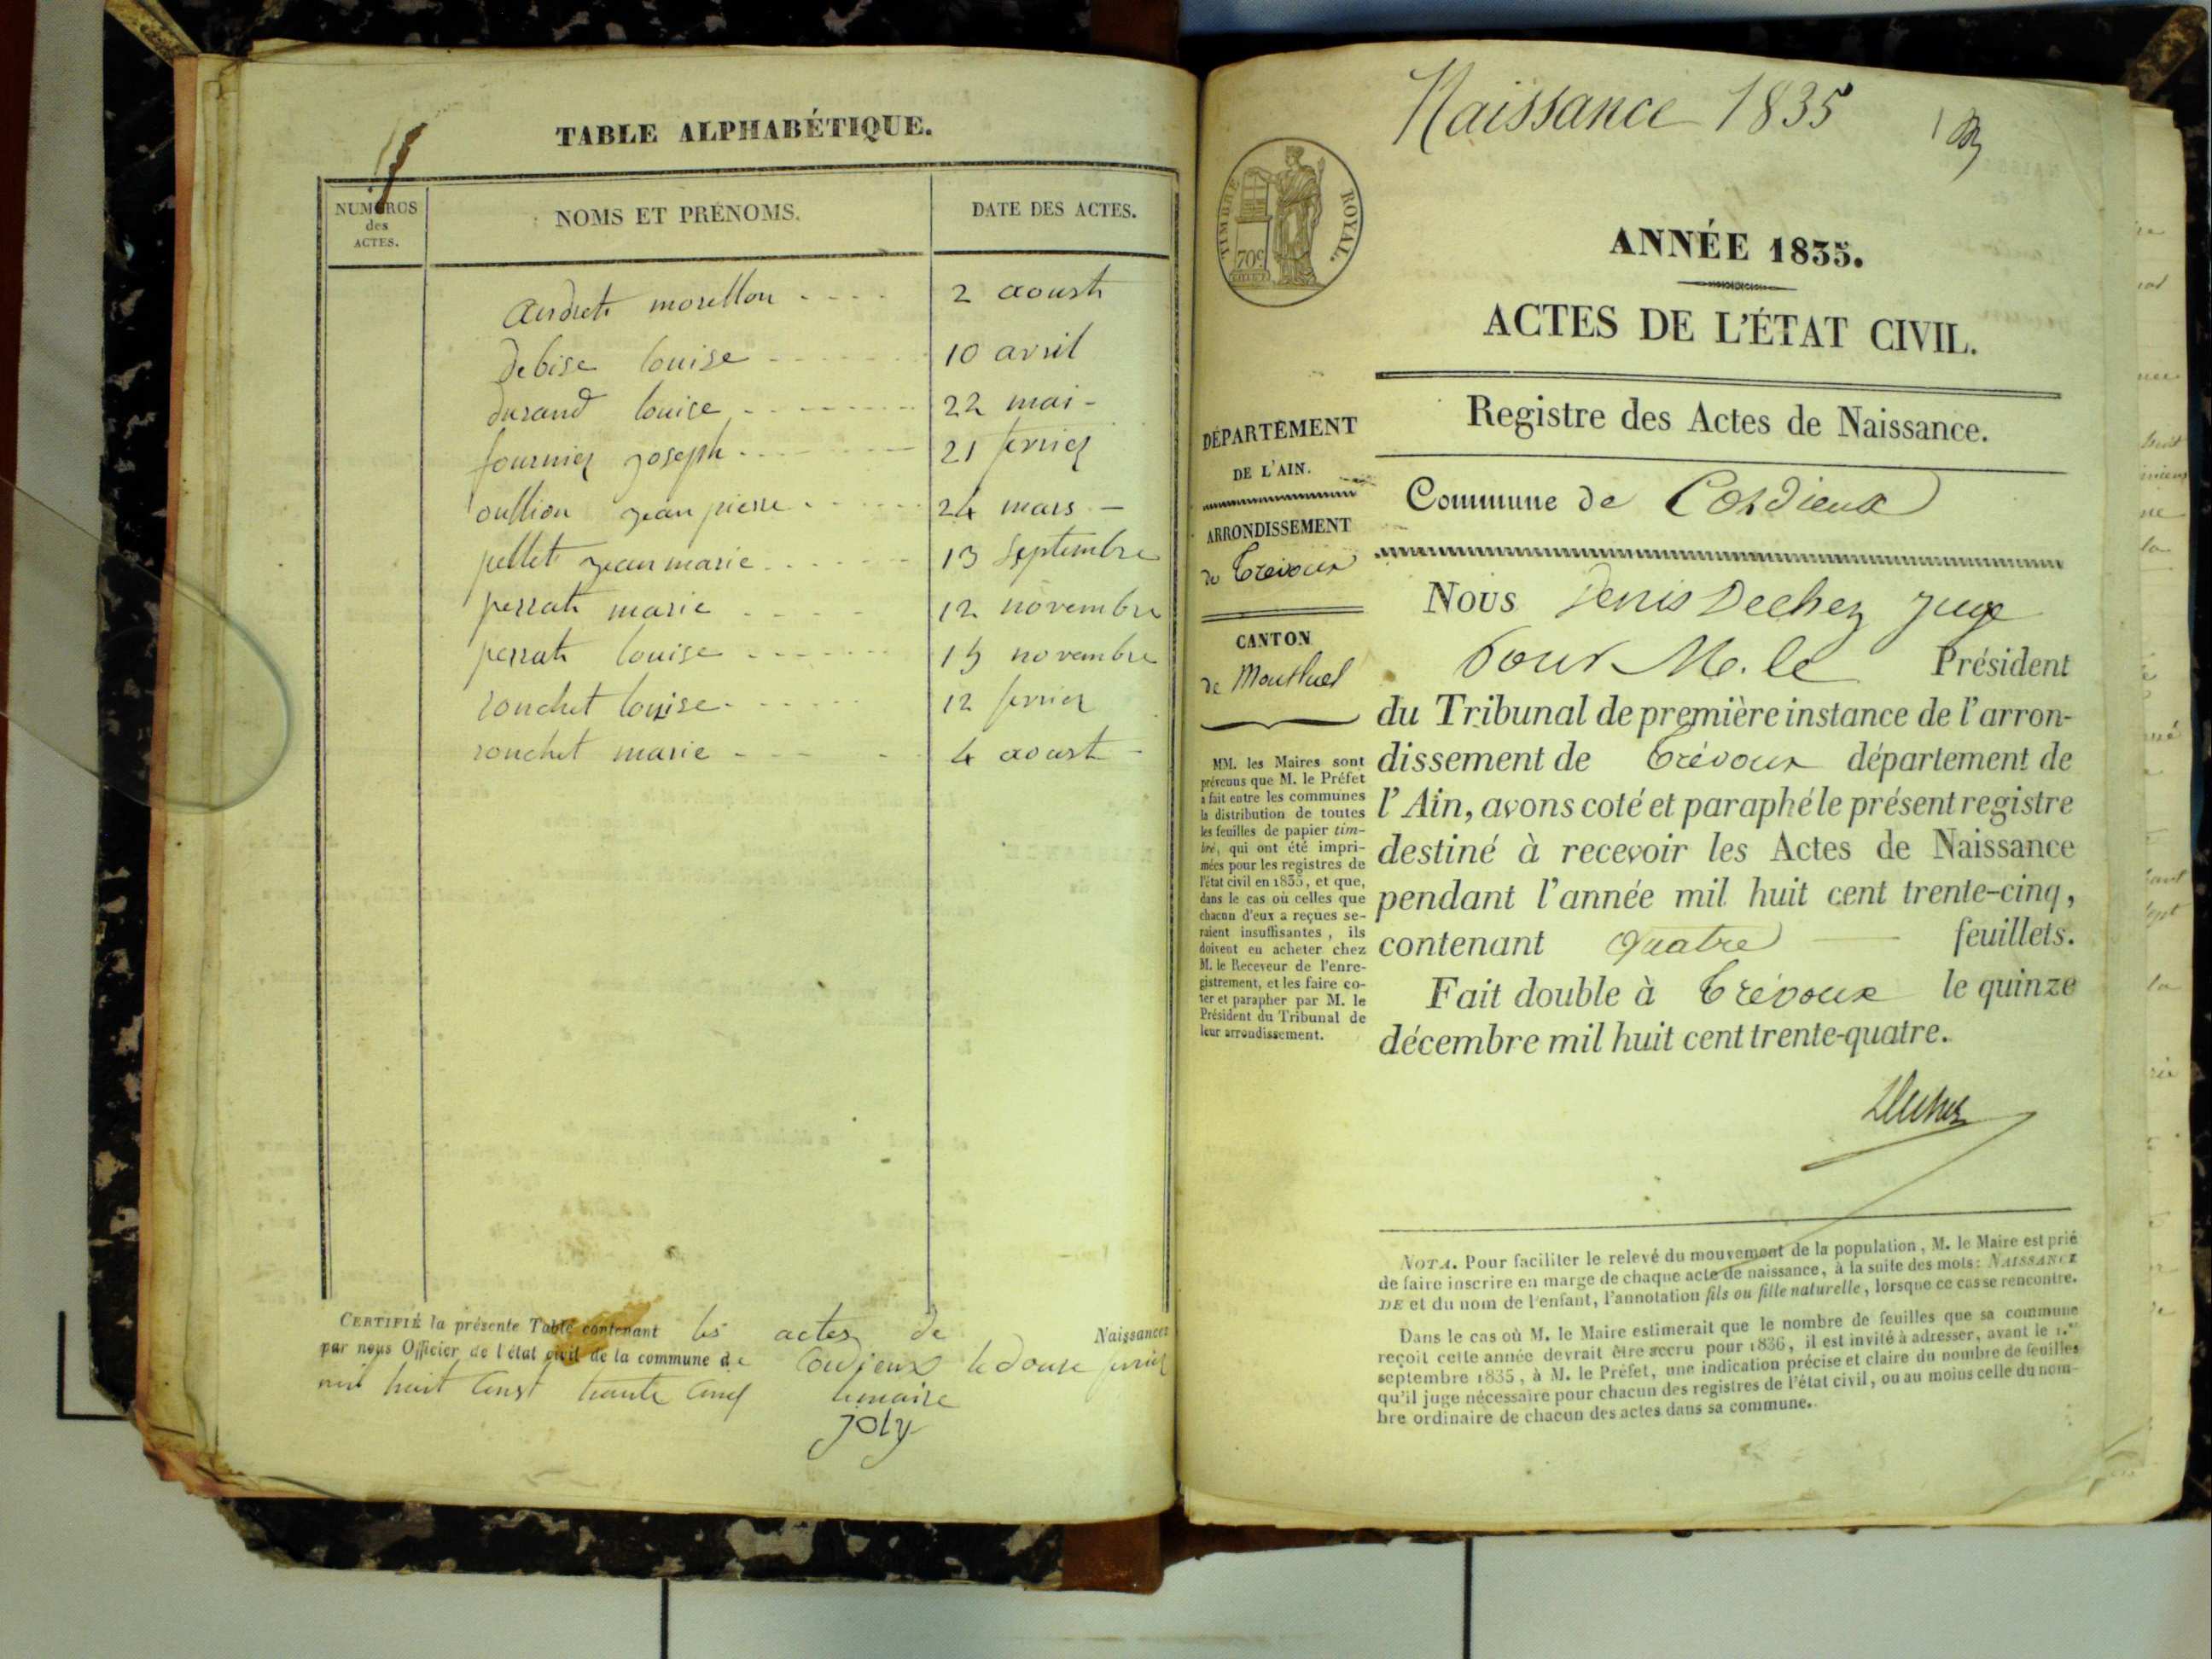 TABLE ALPHABÉTIQUE.
NUMÉROS
des
ACTES.
NOMS ET PRÉNOMS.
DATE DES ACTES.
morellon 2 aoust
debise louise 10 avril
durand louise 22 mai
fournier joseph 21 fevrier
oullion jean pierre 24 mars
pellet jean marie 13 septembre
perrat marie 12 novembre
perrat louise 15 novembre
ronchet louise 12 fevrier
ronchet marie 4 aoust
CERTIFIÉ la présente Table contenant les actes de Naissances
par nous Officier de l'état civil de la commune de Cordieux le douse fevrier
mil huit censt trante cinq lemaire
joly
Naissance 1835
TIMBRE ROYAL.
70c
ANNÉE 1835.
ACTES DE L'ÉTAT CIVIL.
Registre des Actes de Naissance.
DÉPARTEMENT
DE L'AIN.
ARRONDISSEMENT
de Trévoux
CANTON
de Montluel
MM. les Maires sont
prévenus que M. le Préfet
a fait entre les communes
la distribution de toutes
les feuilles de papier tim-
bré, qui ont été impri-
mées pour les registres de
l'état civil en 1835, et que,
dans le cas où celles que
chacun d'eux a reçues se-
raient insuffisantes, ils
doivent en acheter chez
M. le Receveur de l'enre-
gistrement, et les faire co-
ter et parapher par M. le
Président du Tribunal de
leur arrondissement.
Commune de Cordieux
Nous Denis Dechez juge
Pour M. le Président
du Tribunal de première instance de l'arron-
dissement de Trévoux département de
l'Ain, avons coté et paraphé le présent registre
destiné à recevoir les Actes de Naissance
pendant l'année mil huit cent trente-cinq,
contenant quatre feuillets.
Fait double à Trévoux le quinze
décembre mil huit cent trente-quatre.
Dechez
NOTA. Pour faciliter le relevé du mouvement de la population, M. le Maire est prié
de faire inscrire en marge de chaque acte de naissance, à la suite des mots: NAISSANCE
DE et du nom de l'enfant, l'annotation fils ou fille naturelle, lorsque ce cas se rencontre.
Dans le cas où M. le Maire estimerait que le nombre de feuilles que sa commune
reçoit cette année devrait être accru pour 1836, il est invité à adresser, avant le 1.er
septembre 1835, à M. le Préfet, une indication précise et claire du nombre de feuilles
qu'il juge nécessaire pour chacun des registres de l'état civil, ou au moins celle du nom-
bre ordinaire de chacun des actes dans sa commune.